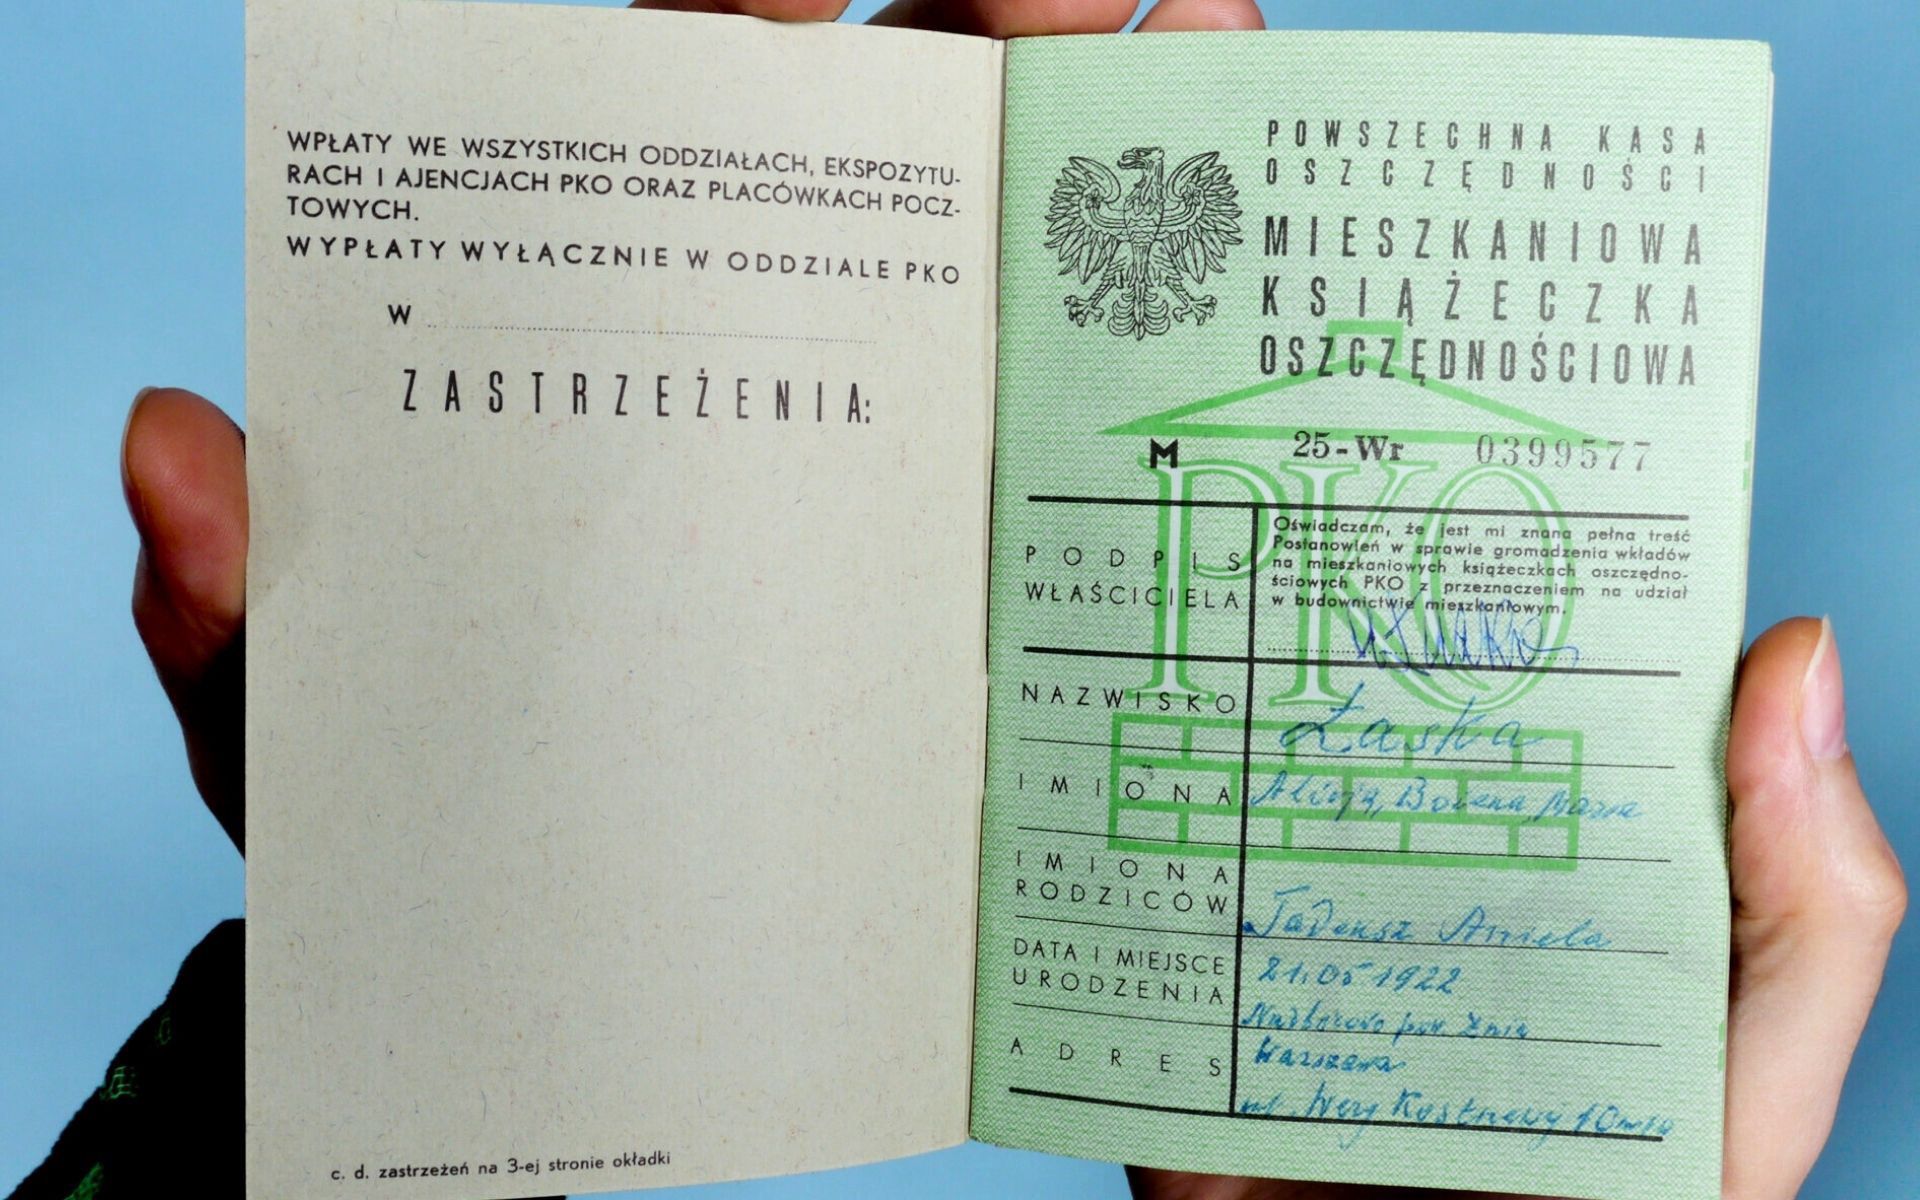 WPŁATY WE WSZYSTKICH ODDZIAŁACH, EKSPOZYTU-
RACH I AJENCJACH PKO ORAZ PLACÓWKACH POCZ-
TOWYCH.
WYPŁATY WYŁĄCZNIE W ODDZIALE PKO
W
ZASTRZEŻENIA:
c. d. zastrzeżeń na 3-ej stronie okładki
POWSZECHNA KASA
OSZCZĘDNOŚCI
MIESZKANIOWA
KSIĄŻECZKA
OSZCZĘDNOŚCIOWA
M 25-Wr 0399577
PKO
PODPIS
WŁAŚCICIELA
Oświadczam, że jest mi znana pełna treść
Postanowień w sprawie gromadzenia wkładów
na mieszkaniowych książeczkach oszczędno-
ściowych PKO z przeznaczeniem na udział
w budownictwie mieszkaniowym.
NAZWISKO Łaska
IMIONA Alicja, Bożena, Maria
IMIONA
RODZICÓW
Tadeusz Aniela
DATA I MIEJSCE
URODZENIA
21.05 1922
pow. Żnin
ADRES Warszawa
ul. Wery Kostrzewy